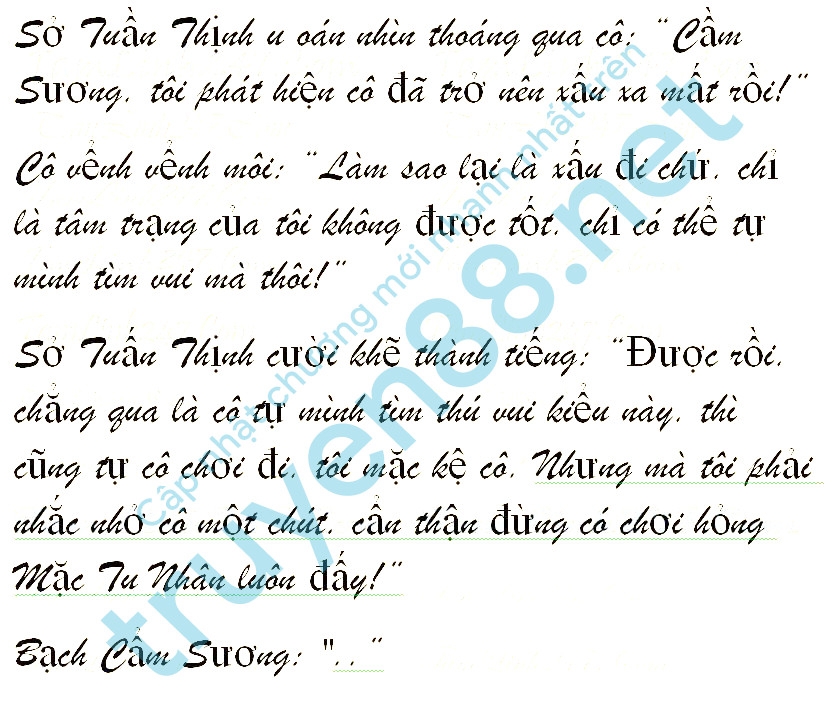 Sở Tuần Thịnh u oán nhìn thoáng qua cô: "Cầm
Sương, tôi phát hiện cô đã trở nên xấu xa mất rồi!"
Cô vểnh vểnh môi: "Làm sao lại là xấu đi chứ, chỉ
là tâm trạng của tôi không được tốt, chỉ có thể tự
mình tìm vui mà thôi!"
Sở Tuấn Thịnh cười khẽ thành tiếng: "Được rồi,
chẳng qua là cô tự mình tìm thú vui kiểu này, thì
cũng tự cô chơi đi, tôi mặc kệ cô. Nhưng mà tôi phải
nhắc nhở cô một chút, cẩn thận đừng có chơi hỏng
Mặc Tu Nhân luôn đấy!"
Bạch Cẩm Sương: "..."
Cập nhật chương mới nhanh nhất trên
truyen88.net